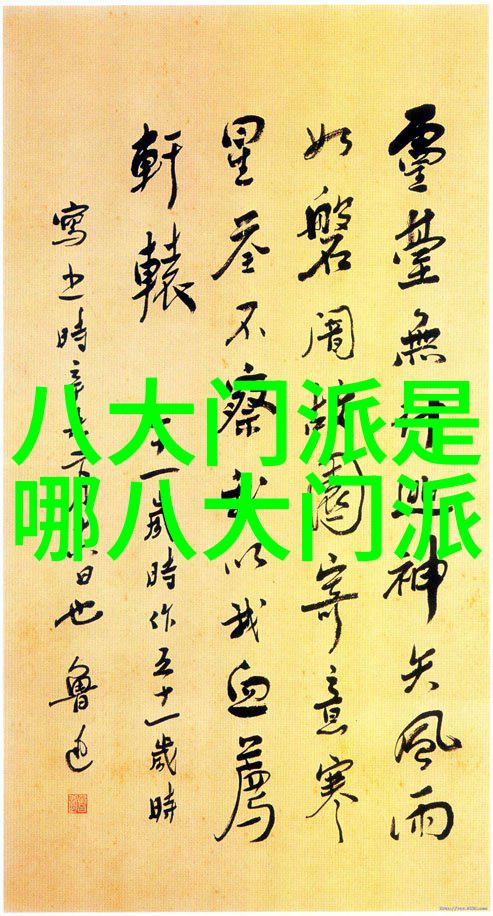 靈臺無逃神矢風雨
如磐闇故園寄意寒
星荃不察我以我血薦
軒轅 一歲時作五十一歲時
寫之時辛未日也 魯迅
八大门派是
哪八大门派